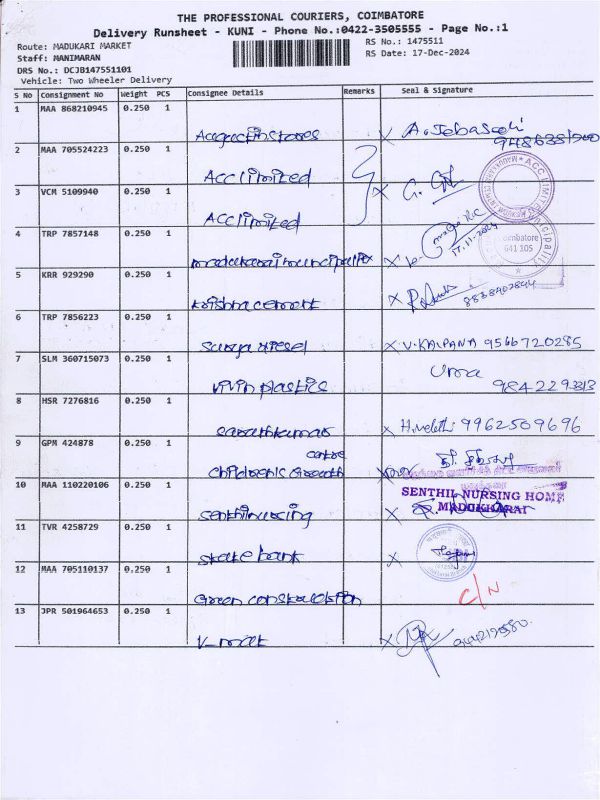 THE PROFESSIONAL COURIERS, COIMBATORE
Delivery Runsheet - KUNI - Phone No.:0422-3505555 - Page No.:1
Route: MADUKARI MARKET
RS No.: 1475511
Staff: MANIMARAN
RS Date: 17-Dec-2024
DRS No.: DCJB147551101
Vehicle: Two Wheeler Delivery
S No Consignment No Weight PCS Consignee Details Remarks Seal & Signature
1 MAA 868210945 0.250 1
A. Jebaseeli
2 MAA 705524223 0.250 1
Acc limited
3 VCM 5109940 0.250 1
Acc limited
4 TRP 7857148 0.250 1
Coimbatore
641 105
5 KRR 929290 0.250 1
Krishna cement
8838902894
6 TRP 7856223 0.250 1
V. KALPANA 9566720285
7 SLM 360715073 0.250 1
vivin plastics
Uma
8 HSR 7276816 0.250 1
sarathkumar
9962509696
9 GPM 424878 0.250 1
10 MAA 110220106 0.250 1
SENTHIL NURSING HOME
MADUKKARAI
11 TVR 4258729 0.250 1
state bank
12 MAA 705110137 0.250 1
C/N
13 JPR 501964653 0.250 1